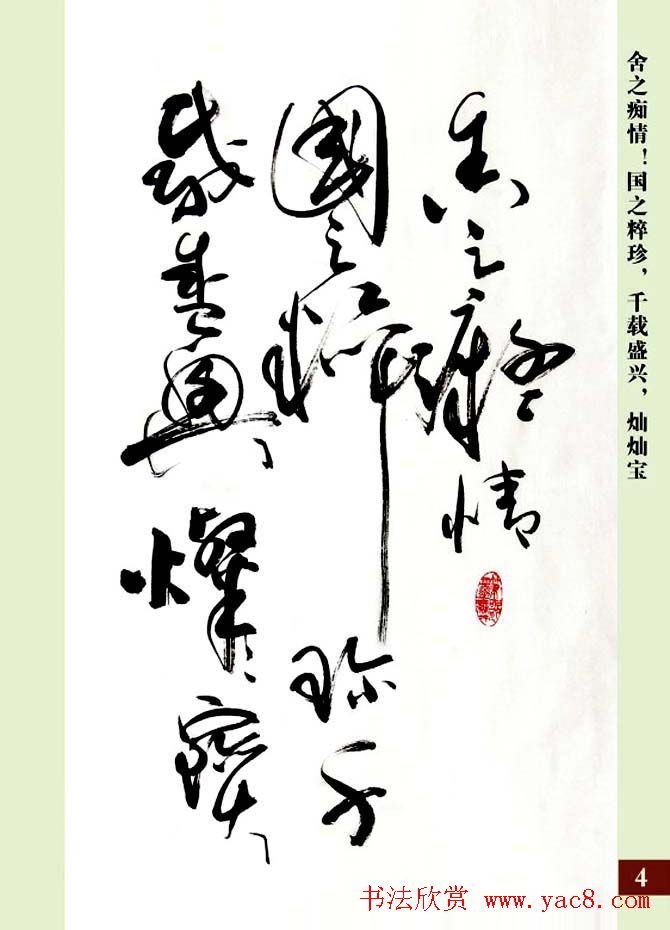 舍之癡情
國之粹珍千
載盛興燦々寶
舍之痴情！国之粹珍，千载盛兴，灿灿宝
4
书法欣赏 www.yac8.com